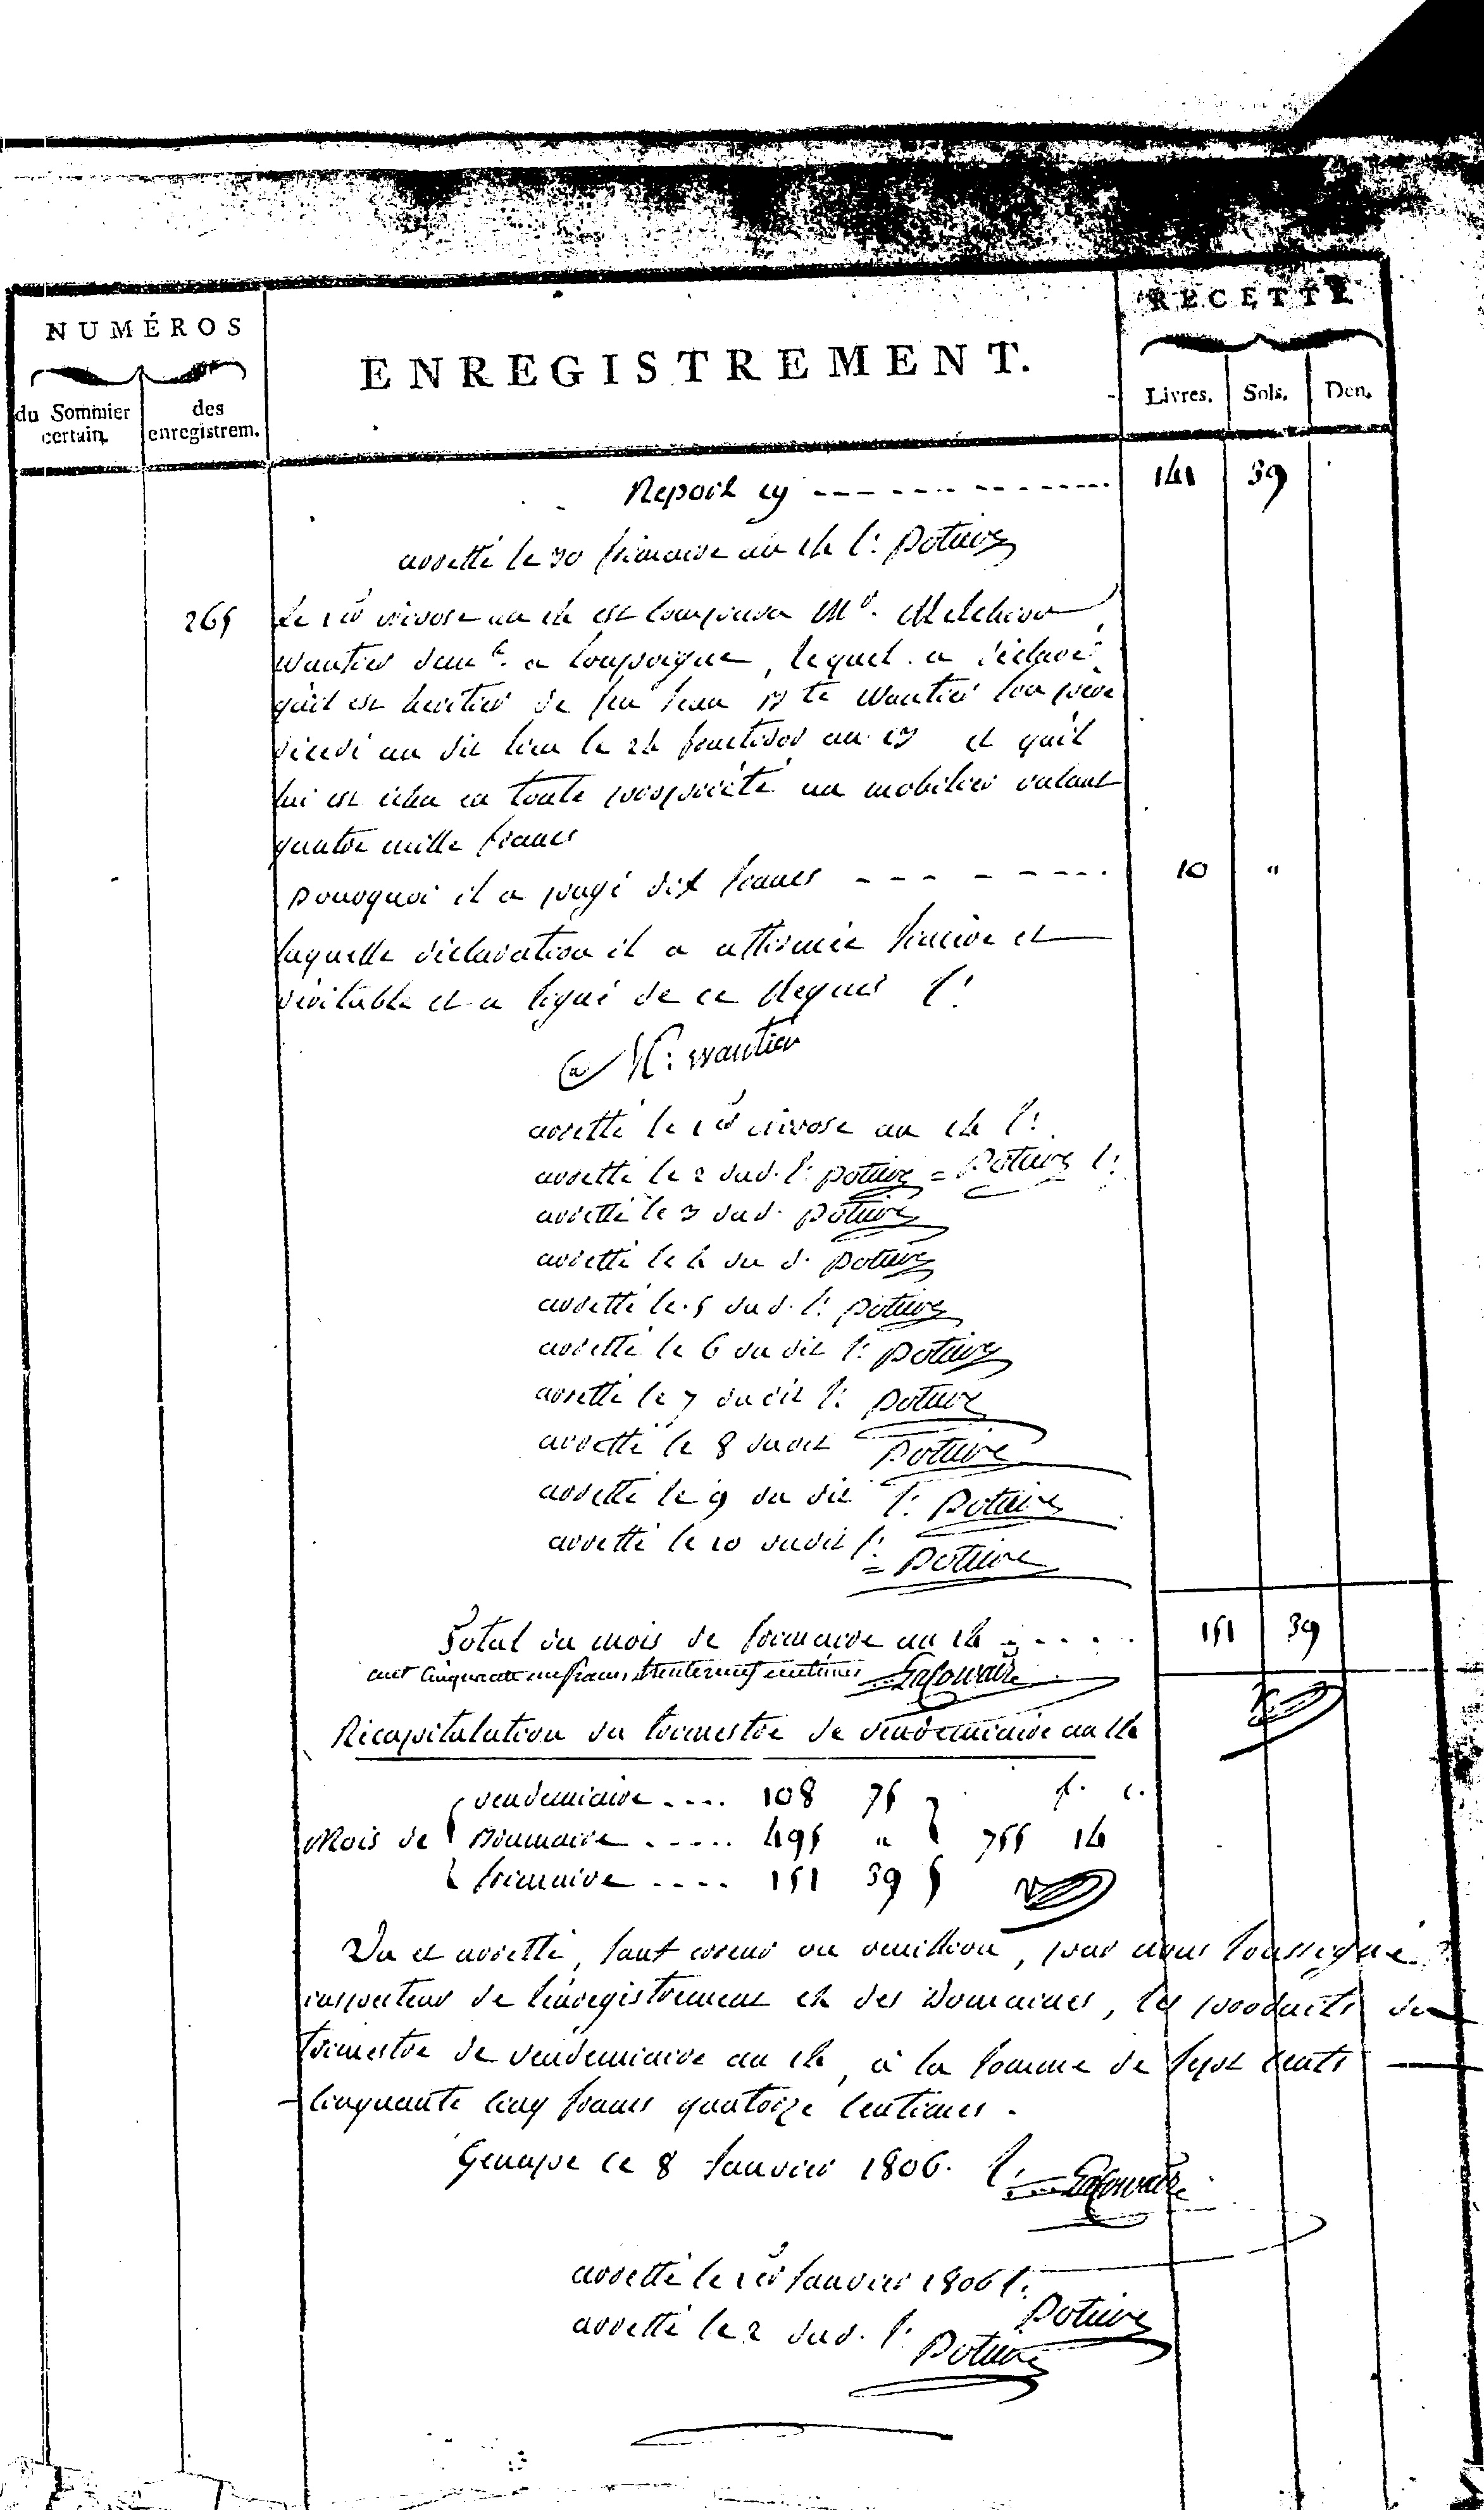 NUMÉROS
ENREGISTREMENT.
RECETTE
du Sommier certain.
des enregistrem.
Livres. Sols. Den.
Report cy 141 39
arretté le 30 frimaire an 14 s: Poture
265 Le 1er nivose an 14 est comparu Mr. Melchior
Wautier dem.t a Loupoigne, lequel a déclaré
qu'il est heritier de feu Jean Bte Wautier son père
décédé au dit lieu le 24 fructidor an 13 et qu'il
lui est échu en toute propriété un mobilier valant
quatre mille francs
Pourquoi il a payé dix francs 10 "
laquelle déclaration il a affirmée sincère et
véritable et a signé de ce requis s:
M: wautier
arretté le 1er nivose an 14 s:
arretté le 2 dud. s: Poture = Poture s:
arretté le 3 dud. Poture
arretté le 4 du d. Poture
arretté le 5 dud. s: Poture
arretté le 6 du dit s: Poture
arretté le 7 du dit s: Poture
arretté le 8 dudit Poture
arretté le 9 du dit s: Poture
arretté le 10 dudit s: = Poture
Total du mois de frimaire an 14 151 39
cent cinquante un francs trente neuf centimes
Récapitulation du trimestre de vendemiaire an 14
vendemiaire .... 108 75 f. c.
Mois de Brumaire ..... 495 " 755 14
frimaire .... 151 39
Vu et arretté, sauf erreur ou omission, par nous soussigné
inspecteur de l'enregistrement et des Domaines, les produits du
trimestre de vendemiaire an 14, à la somme de sept cents
cinquante cinq francs quatorze centimes.
Genappe ce 8 Janvier 1806. s:
arretté le 1er Janvier 1806 s: Poture
arretté le 2 dud. s: Poture